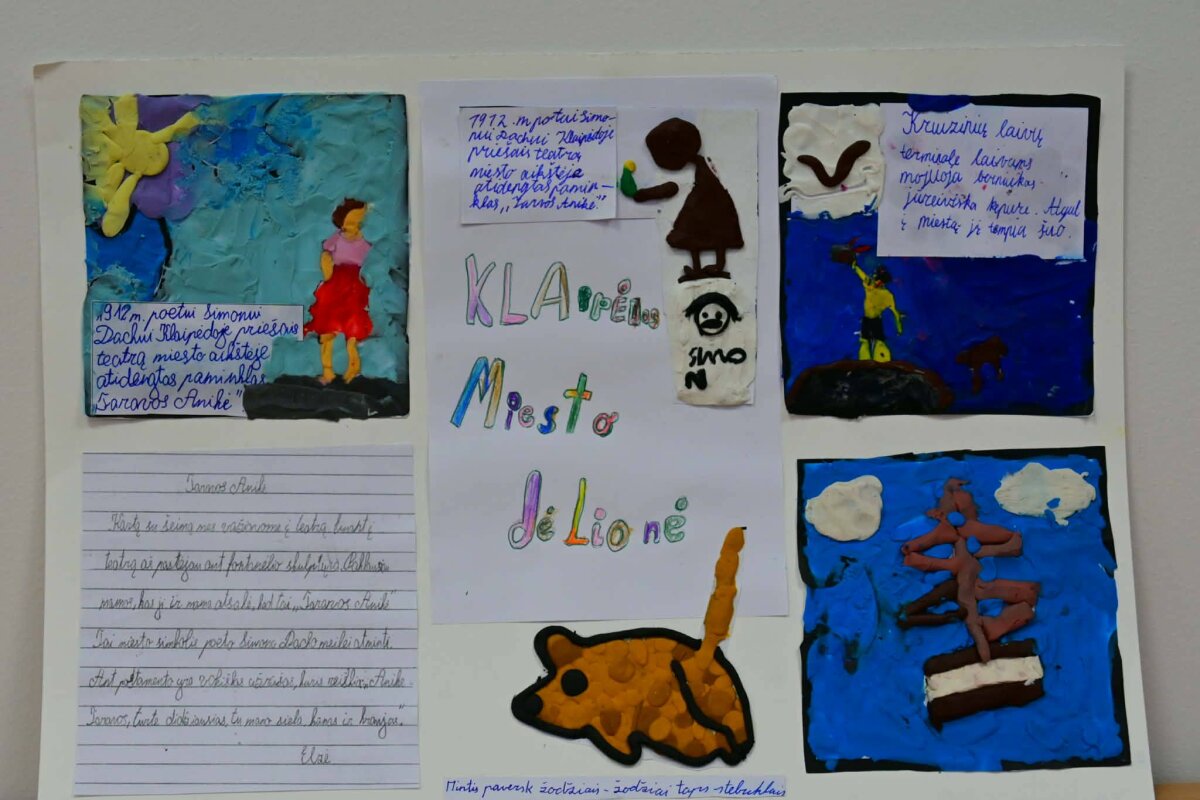 1912 m. poetui Simonui
Dachui Klaipėdoje priešais
teatrą miesto aikštėje
atidengtas paminklas
„Taravos Anikė“
1912 m. poetui Simo-
nui Dachui Klaipėdoje
priešais teatrą
miesto aikštėje
atidengtas pamin-
klas „Taravos Anikė“
SIMO
N
Kruizinių laivų
terminale laivams
mojuoja berniukas
jūreiviška kepure. Atgal
į miestą jį tempia šuo.
KLAIPĖdos
Miesto
dėLionė
Taravos Anikė
Kartą su šeima mes važiavome į teatrą. Lankant į
teatrą aš pastebėjau ant fontanėlio skulptūrą. Paklausiau
mamos, kas ji ir mama atsakė, kad tai „Taravos Anikė“
Tai miesto simbolis poeto Simono Dacho meilei atminti.
Ant postamento yra vokiškas užrašas, kuris reiškia „Anikė
Taravos, turte didžiausias, tu mano siela, kūnas ir kraujas“.
Elzė
Mintis paversk žodžiais - žodžiai taps stebuklais